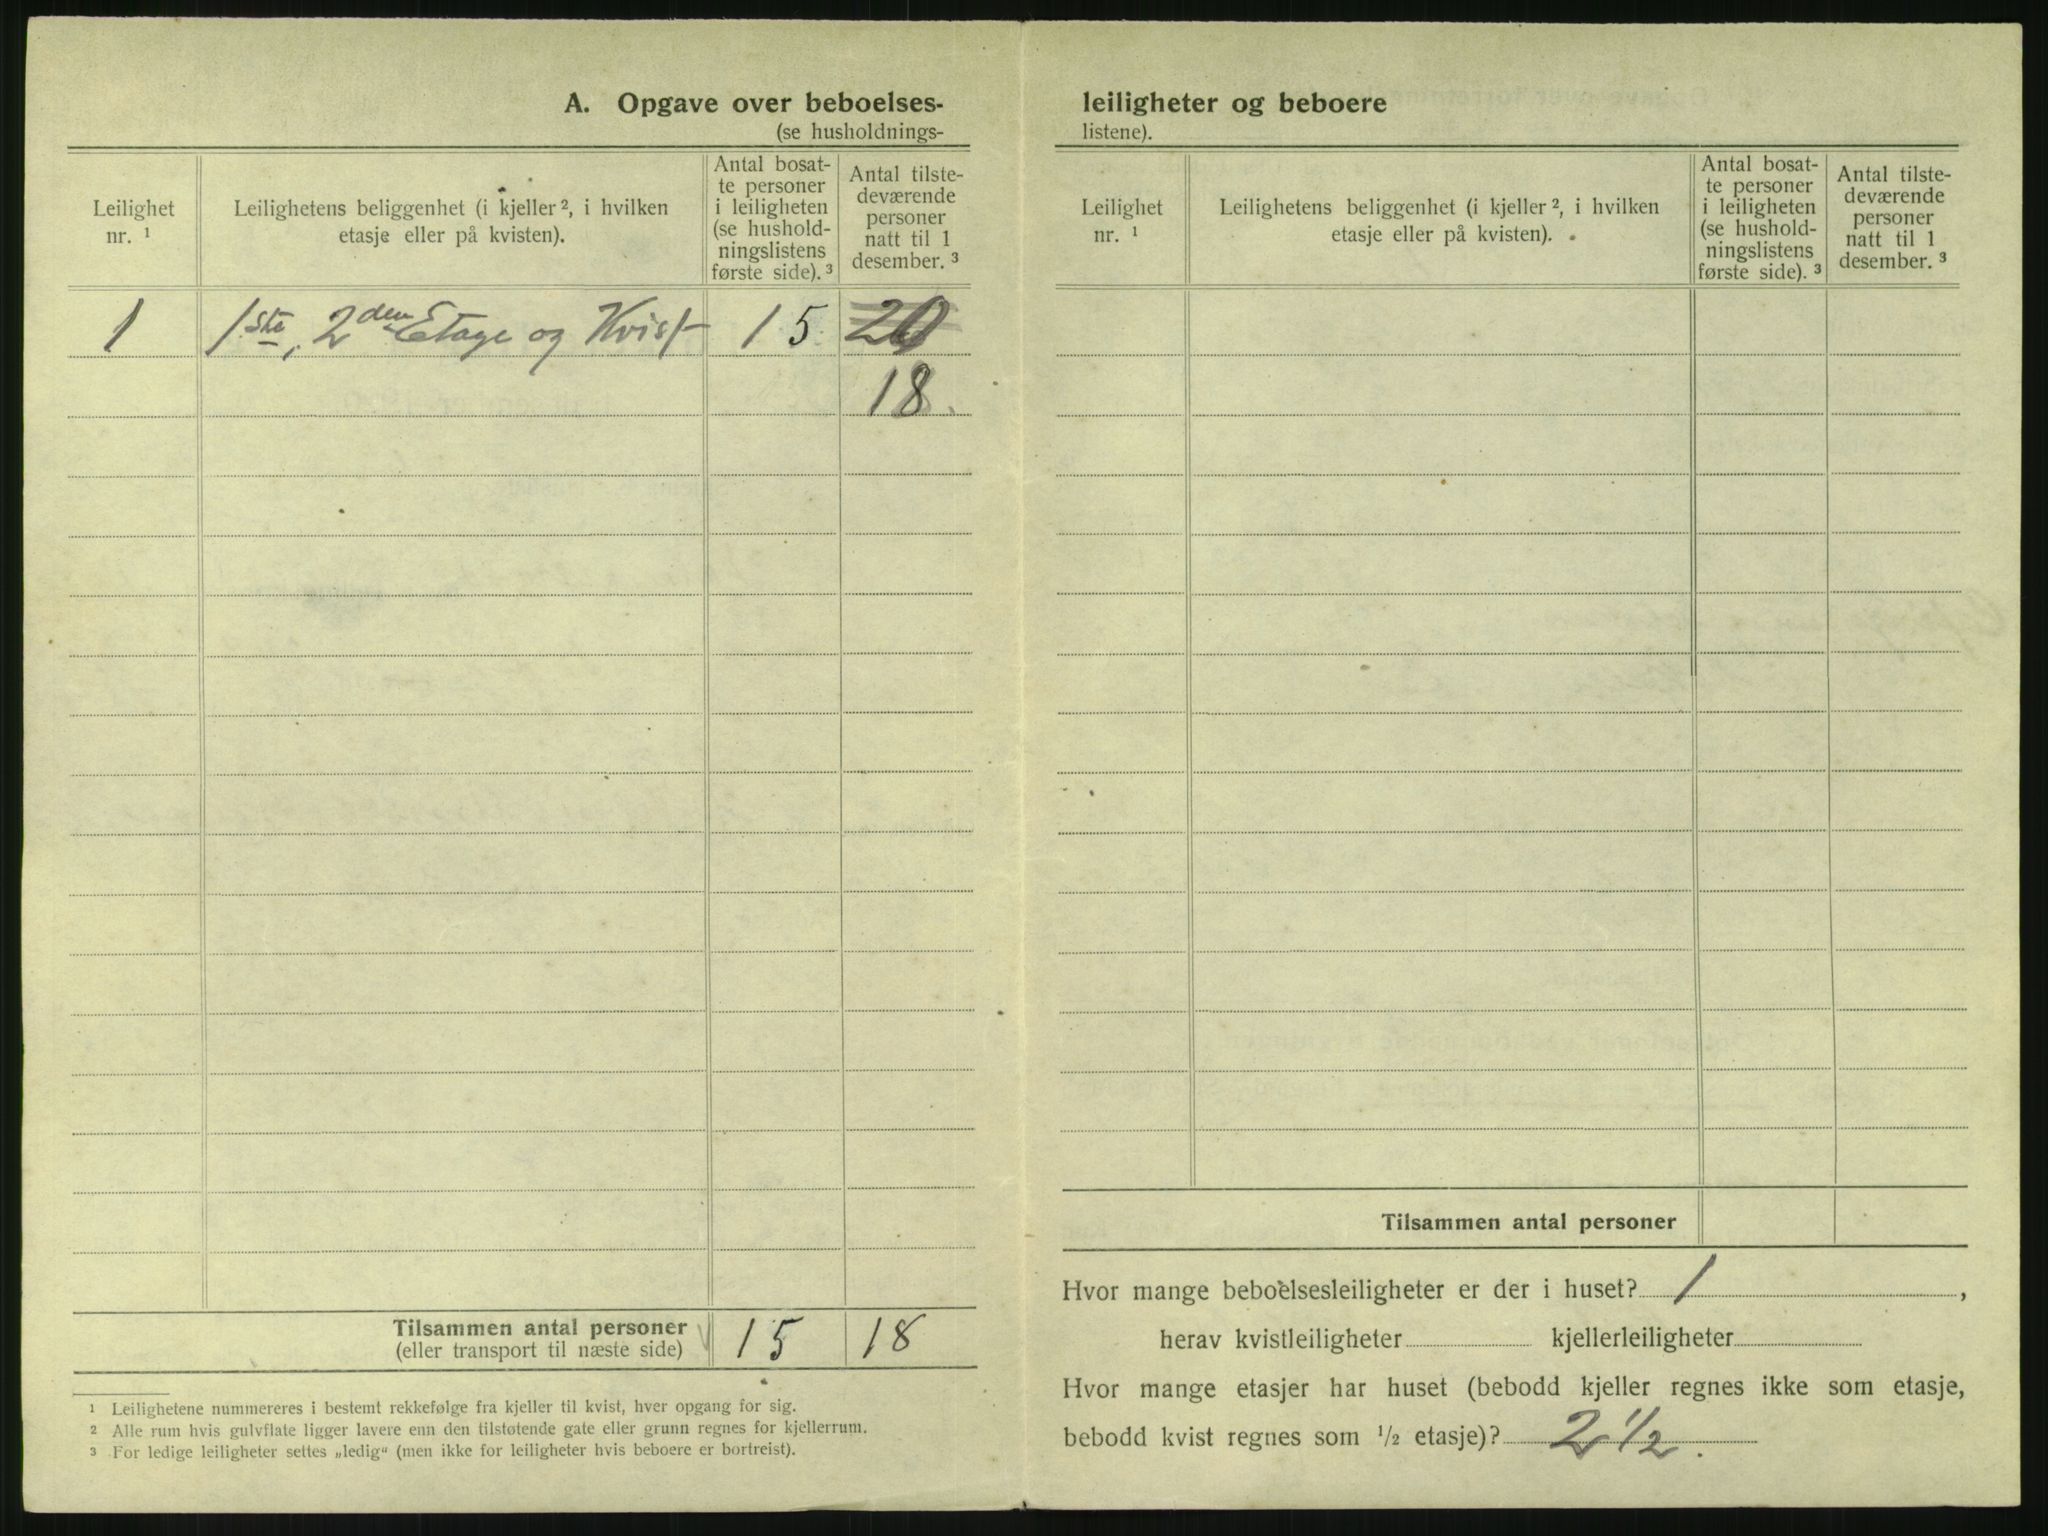 A. Opgave over beboelses-
(se husholdnings-
Leilighet
nr. ¹
Leilighetens beliggenhet (i kjeller ², i hvilken
etasje eller på kvisten).
Antal bosat-
te personer
i leiligheten
(se hushold-
ningslistens
første side). ³
Antal tilste-
deværende
personer
natt til 1
desember. ³
1 1ste, 2den Etage og Kvist 15 20
18.
Tilsammen antal personer 15 18
(eller transport til næste side)
¹ Leilighetene nummereres i bestemt rekkefølge fra kjeller til kvist, hver opgang for sig.
² Alle rum hvis gulvflate ligger lavere enn den tilstøtende gate eller grunn regnes for kjellerrum.
³ For ledige leiligheter settes „ledig“ (men ikke for leiligheter hvis beboere er bortreist).
leiligheter og beboere
listene).
Leilighet
nr. ¹
Leilighetens beliggenhet (i kjeller ², i hvilken
etasje eller på kvisten).
Antal bosat-
te personer
i leiligheten
(se hushold-
ningslistens
første side). ³
Antal tilste-
deværende
personer
natt til 1
desember. ³
Tilsammen antal personer
Hvor mange beboelsesleiligheter er der i huset? 1,
herav kvistleiligheter kjellerleiligheter
Hvor mange etasjer har huset (bebodd kjeller regnes ikke som etasje,
bebodd kvist regnes som ½ etasje)? 2½.